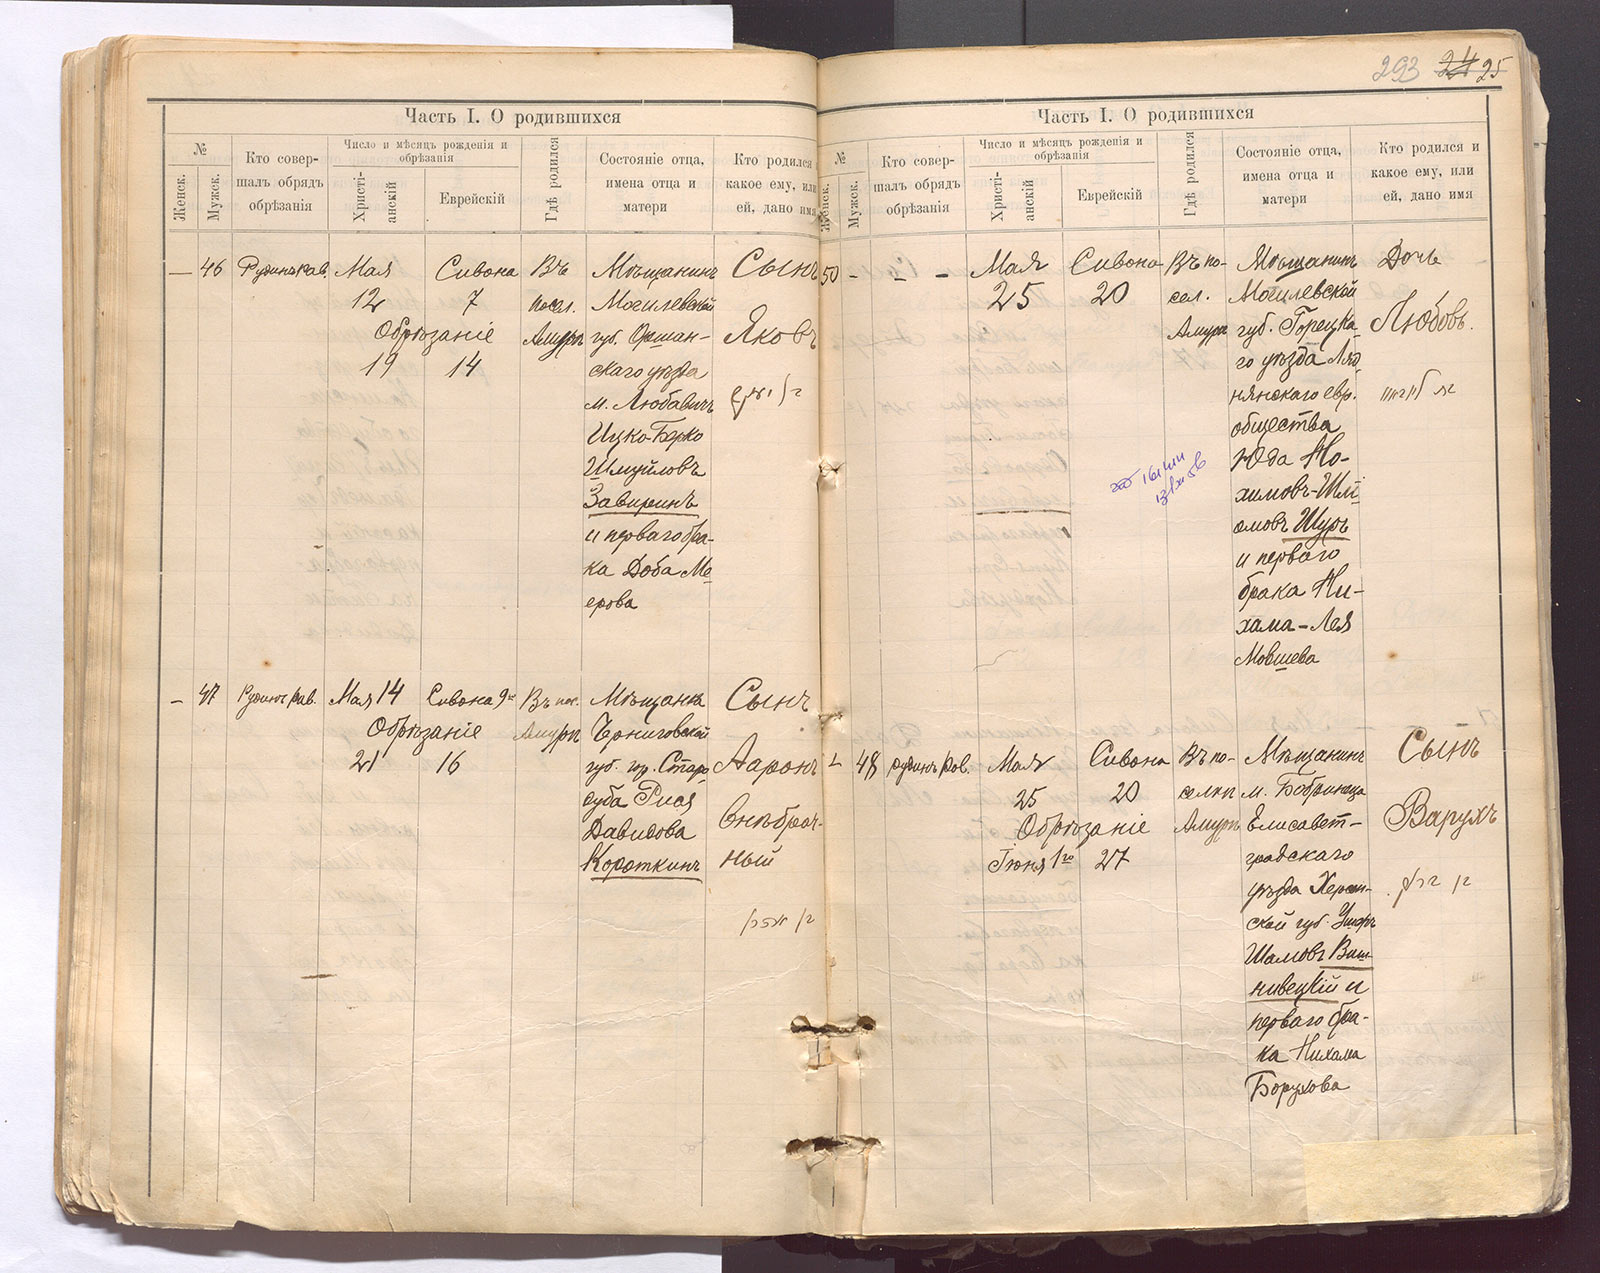 293 24 25
Часть I. О родившихся
№
Женск.
Мужск.
Кто совер-
шалъ обрядъ
обрѣзанія
Число и мѣсяцъ рожденія и
обрѣзанія
Христі-
анскій
Еврейскій
Гдѣ родился
Состояніе отца,
имена отца и
матери
Кто родился и
какое ему, или
ей, дано имя
— 46
Мая
12
Сивона
7
Обрѣзаніе
19 14
Въ
посел.
Амурѣ
Мѣщанинъ
Могилевской
губ. Оршан-
скаго уѣзда
м. Любавичъ
Ицко-Берко
Шмуйловъ
Завиринъ
и перваго бра-
ка Доба Ме
ерова
Сынъ
Яковъ
— 47
Мая 14
Сивона 9го
Обрѣзаніе
21 16
Въ пос.
Амурѣ
Мѣщанка
Черниговской
губ. гор. Старо
дуба Рися
Давидова
Короткинъ
Сынъ
Ааронъ
Внѣбрач-
ный
Часть I. О родившихся
№
Женск.
Мужск.
Кто совер-
шалъ обрядъ
обрѣзанія
Число и мѣсяцъ рожденія и
обрѣзанія
Христі-
анскій
Еврейскій
Гдѣ родился
Состояніе отца,
имена отца и
матери
Кто родился и
какое ему, или
ей, дано имя
50 - - -
Мая
25
Сивона
20
Въ по-
сел.
Амурѣ
Мѣщанинъ
Могилевской
губ. Горецка-
го уѣзда Ляд
нянскаго евр.
общества
Юда
и перваго
брака Ни-
хама-Лея
Мовшева
Дочь
Любовь.
48
Мая
25
Сивона
20
Обрѣзаніе
Іюня 1го 27
Въ по-
селкѣ
Амурѣ
Мѣщанинъ
м. Бобринеца
Елисавет-
градскаго
уѣзда Херсон-
ской губ.
Виш-
нивецкій и
перваго бра-
ка Нихама
Борухова
Сынъ
Варухъ